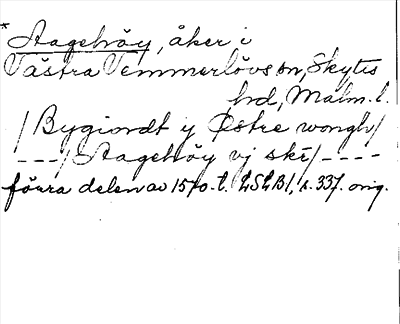 * Aagehöy, åker i
Västra Vemmerlövs sn, Skytts
hd, Malm. l.
/ Bygiondt y Østre wongh/
---/ Aagehöy vj skĕ/----
förra delen av 1570-t. LSLB1, s. 337. orig.